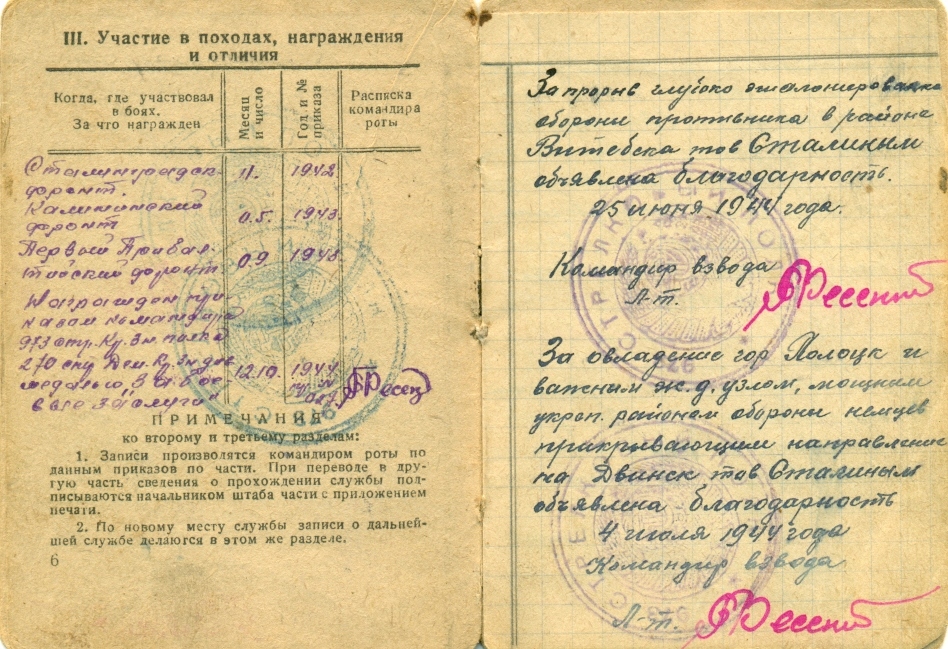 III. Участие в походах, награждения
и отличия
Когда, где участвовал
в боях.
За что награжден
Месяц
и число
Год и №
приказа
Расписка
командира
роты
Сталинградск.
фронт. 11. 1942
Калининский
фронт 0.5. 1943.
Первый Прибал-
тийский фронт. 09 1943
Награжден при-
казом командира
973 стр. Кр. Зн. полка
270
медалью „За бое- 12.10. 1944
вые заслуги“
ПРИМЕЧАНИЯ
ко второму и третьему разделам:
1. Записи производятся командиром роты по
данным приказов по части. При переводе в дру-
гую часть сведения о прохождении службы под-
писываются начальником штаба части с приложением
печати.
2. По новому месту службы записи о дальней-
шей службе делаются в этом же разделе.
6
За прорыв глубоко
оборони противника в района
Витебска тов Сталиным
объявлена благодарность.
25 июня 1944 года.
Командир взвода
Л-т.
За овладение гор Полоцк и
важным ж.д. узлом, мощным
укреп. районам обороны немцев
прикрывающим направление
на Двинск тов Сталиным
объявлена благодарность
4 июля 1944 года
Командир взвода
Л-т.